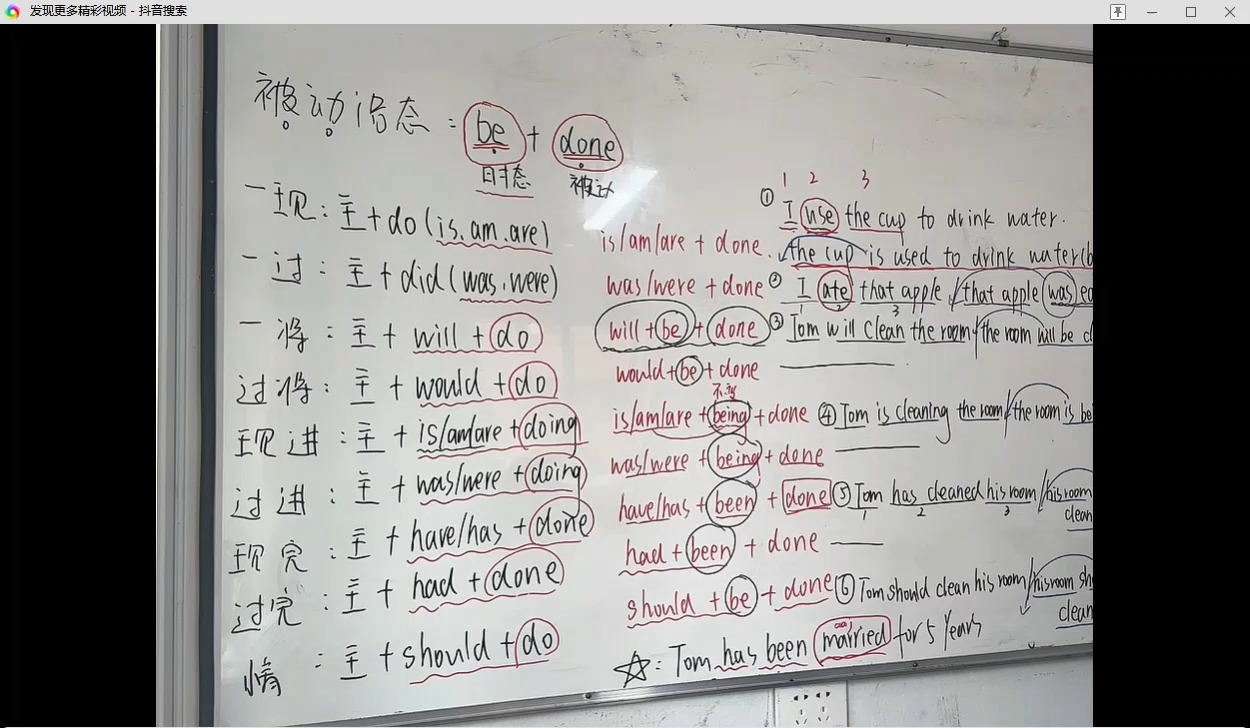 发现更多精彩视频 - 抖音搜索
被动语态 : be + done
时态 被动
一现: 主 + do (is.am.are)
一过: 主 + did (was.were)
一将: 主 + will + do
过将: 主 + would + do
现进: 主 + is/am/are + doing
过进: 主 + was/were + doing
现完: 主 + have/has + done
过完: 主 + had + done
情: 主 + should + do
is/am/are + done.
was/were + done
will + be + done
would + be + done
不变
is/am/are + being + done
was/were + being + done
have/has + been + done
had + been + done
should + be + done
1 2 3
① I use the cup to drink water.
the cup is used to drink water(b
② I ate that apple / that apple was ea
1 2 3
③ Tom will clean the room / the room will be cl
④ Tom is cleaning the room / the room is be
⑤ Tom has cleaned his room / his room
1 2 3
clean
⑥ Tom should clean his room / his room sh
clean
☆: Tom has been married for 5 years